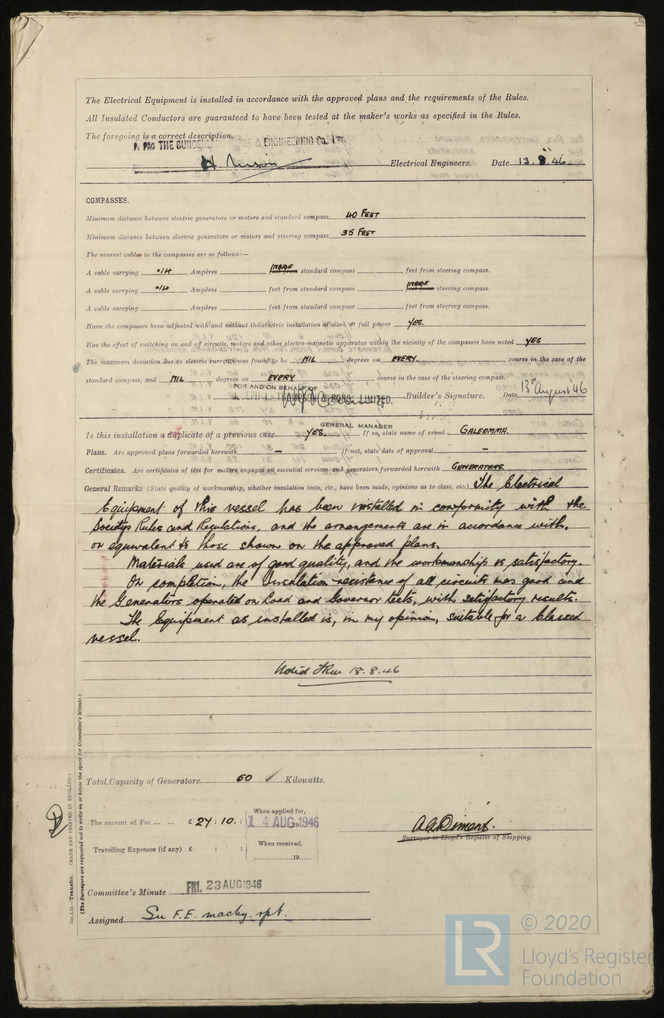 The Electrical Equipment is installed in accordance with the approved plans and the requirements of the Rules.
All Insulated Conductors are guaranteed to have been tested at the maker's works as specified in the Rules.
The foregoing is a correct description.
P. PRO THE SUNDERL ENGINEERING Co. LTD.
Electrical Engineers. Date 13.8.46
COMPASSES.
Minimum distance between electric generators or motors and standard compass 40 FEET
Minimum distance between electric generators or motors and steering compass 35 FEET
The nearest cables to the compasses are as follows:—
A cable carrying .14 Ampères INSIDE standard compass feet from steering compass.
A cable carrying .14 Ampères feet from standard compass INSIDE steering compass.
A cable carrying Ampères feet from standard compass feet from steering compass.
Have the compasses been adjusted with and without the electric installation at work at full power YES.
Has the effect of switching on and off circuits, motors and other electro-magnetic apparatus within the vicinity of the compasses been noted YES
The maximum deviation due to electric currents was found to be NIL degrees on EVERY. course in the case of the
standard compass, and NIL degrees on EVERY course in the case of the steering compass.
FOR AND ON BEHALF OF
SONS, LIMITED. Builder's Signature. Date 13th August '46
GENERAL MANAGER
Is this installation a duplicate of a previous case YES. If so, state name of vessel GALEOMMA.
Plans. Are approved plans forwarded herewith – If not, state date of approval –
Certificates. Are certificates of test for motors engaged on essential services and generators forwarded herewith GENERATORS.
General Remarks (State quality of workmanship, whether insulation tests, etc., have been made, opinions as to class, etc.) The Electrical
Equipment of this vessel has been installed in conformity with the
Society's Rules and Regulations, and the arrangements are in accordance with,
or equivalent to those shown on the approved plans.
Materials used are of good quality, and the workmanship is satisfactory.
On completion, the Insulation resistance of all circuits was good and
the Generators operated on Load and Governor tests, with satisfactory results.
The Equipment as installed is, in my opinion, suitable for a Classed
vessel.
Noted 18.8.46
Total Capacity of Generators 60 ✓ Kilowatts.
The amount of Fee £ 27 : 10 : When applied for, 14 AUG 1946
Surveyor to Lloyd's Register of Shipping.
Travelling Expenses (if any) £ : : When received, 19
Committee's Minute FRI. 23 AUG 1946
Assigned See F.E. machy. rpt.
Transfer. (MADE AND PRINTED IN ENGLAND.)
(The Surveyors are requested not to write on or below the space for Committee's Minute.)
LR © 2020
Lloyd's Register
Foundation